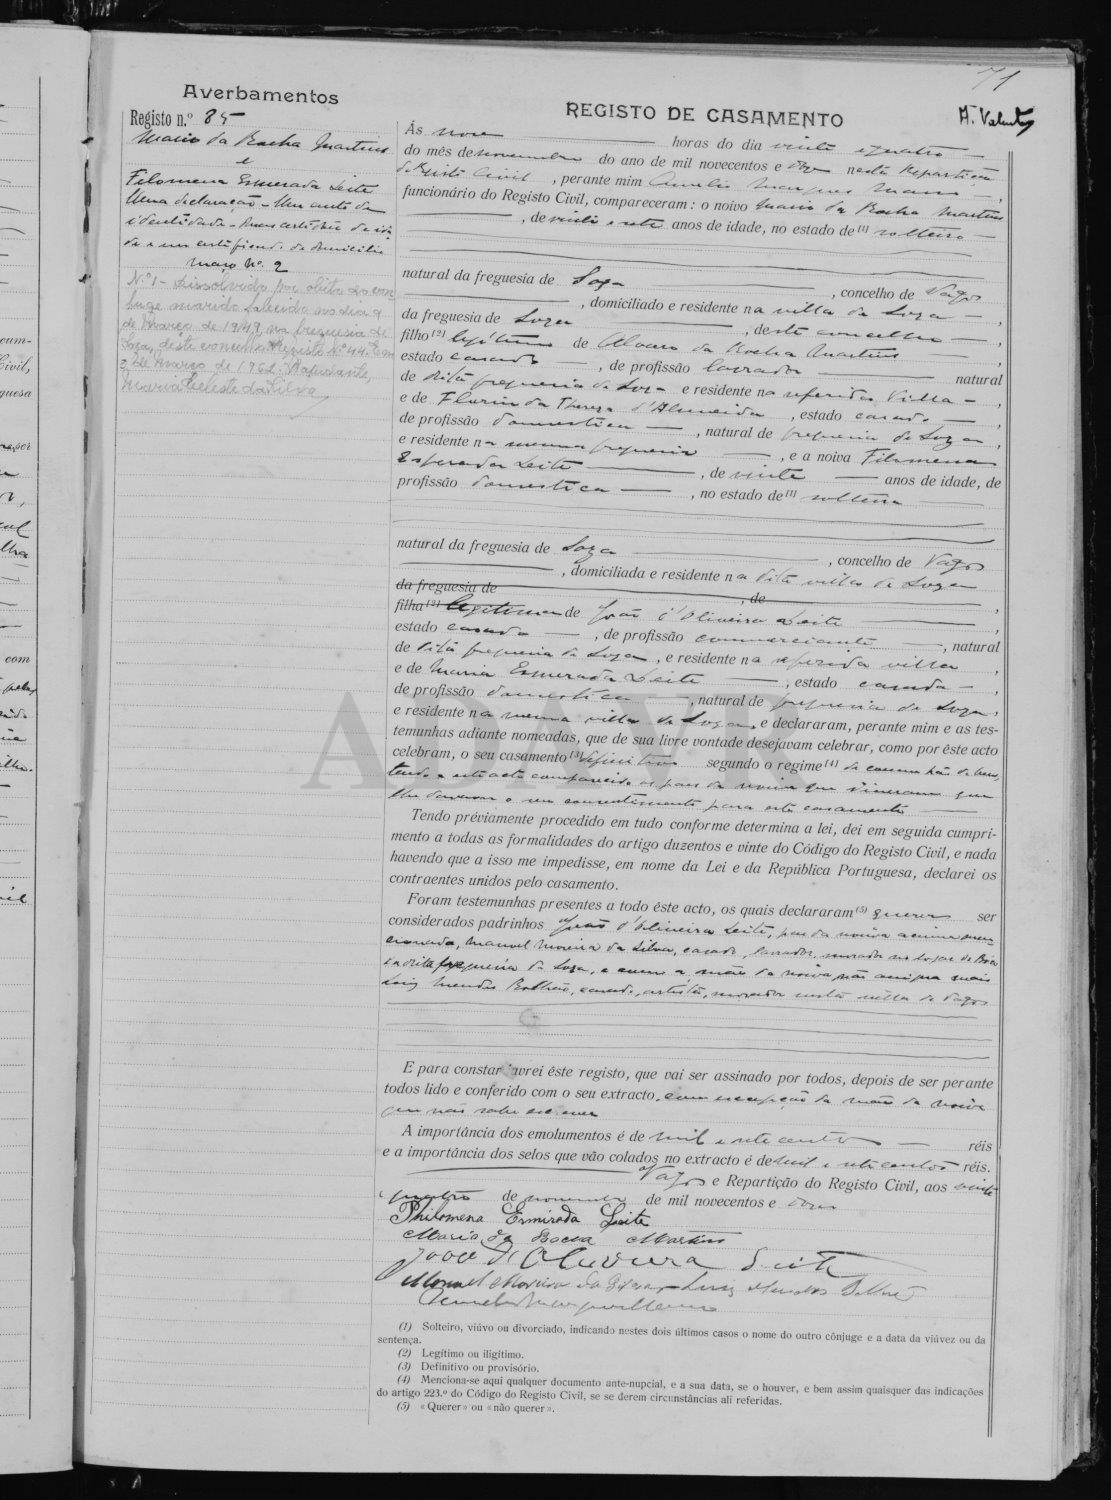 71
Averbamentos
REGISTO DE CASAMENTO
Registo n.º 85
Mario da Rocha Martins
e
Filomena Esmerada Leite
Uma declaração - Um auto de
identidade - Duas certidões de ida
de e um certificado de domicilio
maço Nº 2
N.º 1 - Dissolvido por obito do con
juge marido falecido no dia 9
de Março de 1949 na freguesia de
Soza, deste concelho. Registo Nº 44. Em
2 de Março de 1962. O Ajudante,
Maria Celeste da Silva
Ás nove horas do dia vinte e quatro
do mês de novembro do ano de mil novecentos e doze nesta Repartição
do Registo Civil, perante mim Aurelio Marques Mano,
funcionário do Registo Civil, compareceram: o noivo Mario da Rocha Martins
, de vinte e sete anos de idade, no estado de (1) solteiro
natural da freguesia de Soza, concelho de Vagos
, domiciliado e residente na villa de Soza,
da freguesia de Soza, deste concelho,
filho (2) legitimo de Alvaro da Rocha Martins
estado casado, de profissão lavrador natural
de dita freguesia de Soza e residente na referida Villa,
e de Florinda Thereza d'Almeida, estado casado,
de profissão domestica, natural de freguesia de Soza,
e residente na mesma freguesia, e a noiva Filomena
Esmerada Leite, de vinte anos de idade, de
profissão domestica, no estado de (1) solteira
natural da freguesia de Soza, concelho de Vagos
, domiciliada e residente na dita villa de Soza
da freguesia de , de ,
filha (2) legitima de João d'Oliveira Leite,
estado casado, de profissão commerciante, natural
de dita freguesia de Soza, e residente na referida villa,
e de Maria Esmerada Leite, estado casada,
de profissão domestica, natural de freguesia de Soza,
e residente na mesma villa de Soza, e declararam, perante mim e as tes-
temunhas adiante nomeadas, que de sua livre vontade desejavam celebrar, como por êste acto
celebram, o seu casamento (3) definitivo segundo o regime (4) da comunhão de bens,
tendo a este acto comparecido os paes da noiva que disseram que
lhe davam o seu consentimento para este casamento
Tendo préviamente procedido em tudo conforme determina a lei, dei em seguida cumpri-
mento a todas as formalidades do artigo duzentos e vinte do Código do Registo Civil, e nada
havendo que a isso me impedisse, em nome da Lei e da República Portuguesa, declarei os
contraentes unidos pelo casamento.
Foram testemunhas presentes a todo êste acto, os quais declararam (5) querer ser
considerados padrinhos João d'Oliveira Leite, pae da noiva acima men
cionado, Manuel Moreira da Silva, casado, lavrador, morador no logar de
da dita freguesia de Soza, e como a mãe da noiva não assigna mais
Luiz Mendes Bolhão, casado, artista, morador nesta villa de Vagos
E para constar lavrei êste registo, que vai ser assinado por todos, depois de ser perante
todos lido e conferido com o seu extracto, com excepção da mãe da noiva
que não sabe escrever
A importância dos emolumentos é de mil e sete centos réis
e a importância dos selos que vão colados no extracto é de mil e sete centos réis.
Vagos e Repartição do Registo Civil, aos vinte
e quatro de novembro de mil novecentos e doze
Philomena Esmirada Leite
Mario da Rocha Martins
João d'Oliveira Leite
Manuel Moreira da Silva Luiz Mendes Bolhão
Aurelio Marques Mano
(1) Solteiro, viúvo ou divorciado, indicando nestes dois últimos casos o nome do outro cônjuge e a data da viúvez ou da
sentença.
(2) Legítimo ou iligítimo.
(3) Definitivo ou provisório.
(4) Menciona-se aqui qualquer documento ante-nupcial, e a sua data, se o houver, e bem assim quaisquer das indicações
do artigo 223.º do Código do Registo Civil, se se derem circunstâncias ali referidas.
(5) «Querer» ou «não querer».
ADAVR